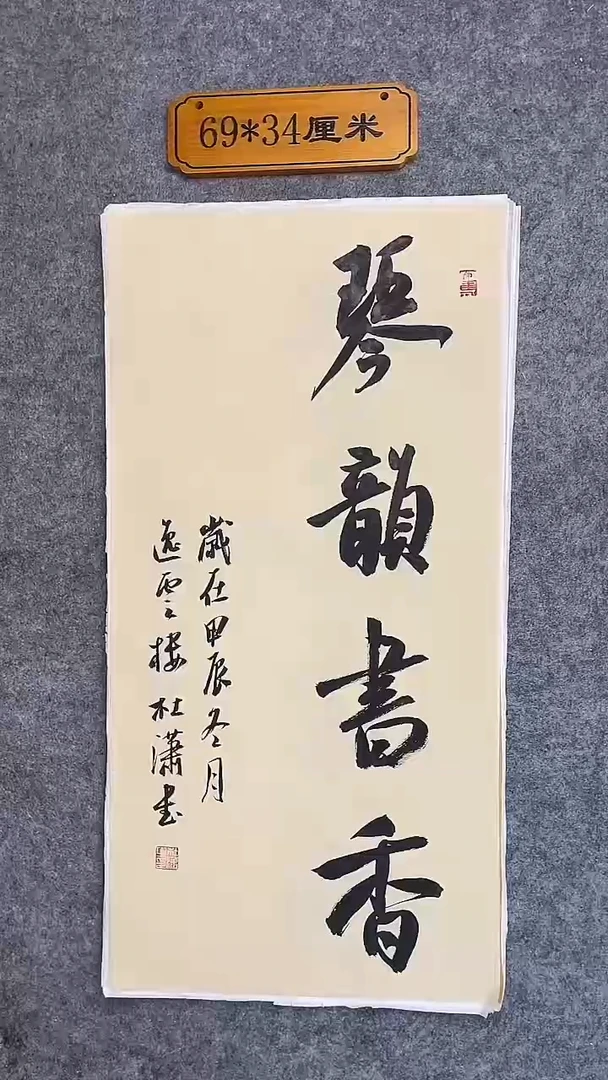 69*34厘米
琴韻書香
歲在甲辰冬月
逸雲樓杜瀟书